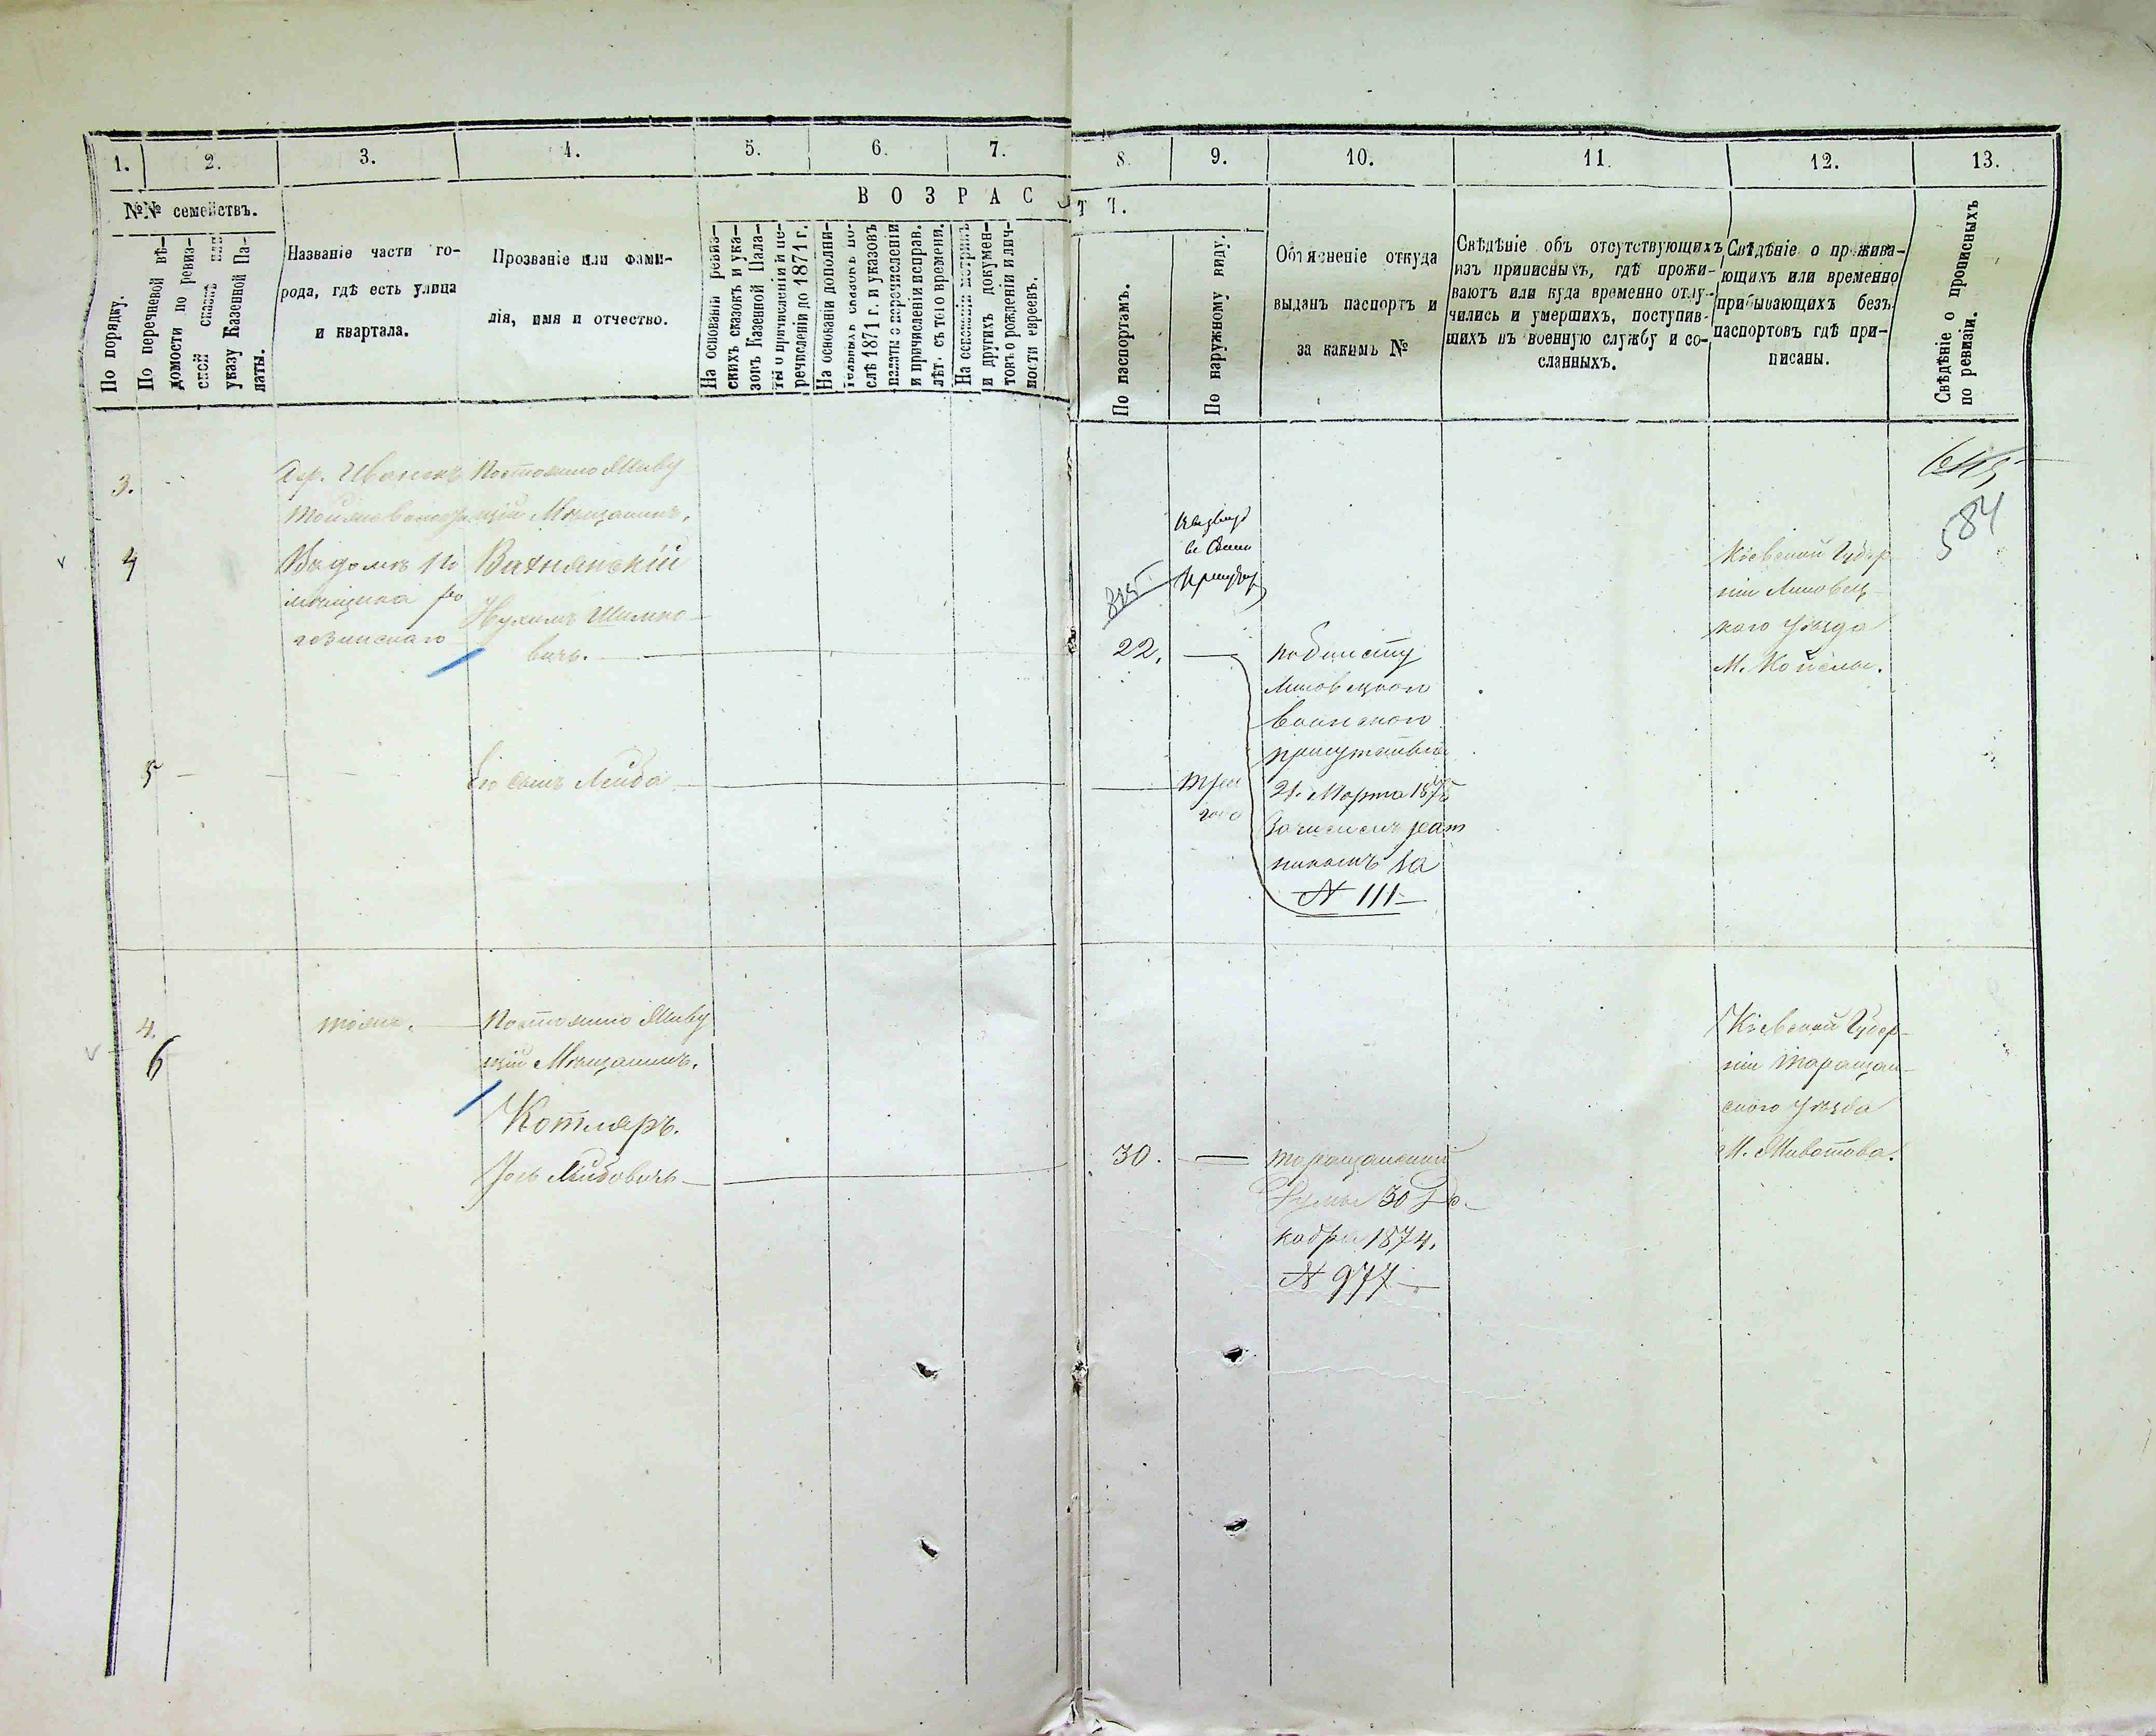 1. 2. 3. 4. 5. 6. 7. 8. 9. 10. 11. 12. 13.
№№ семействъ.
По порядку.
По перечневой вѣ-
домости по ревиз-
ской сказкѣ или
указу Казенной Па-
латы.
Названіе части го-
рода, гдѣ есть улица
и квартала.
Прозваніе или фами-
лія, имя и отчество.
ВОЗРАСТЪ.
На основаніи ревиз-
скихъ сказокъ и ука-
зовъ Казенной Пала-
ты о причисленіи и пе-
речисленіи до 1871 г.
На основаніи дополни-
тельныхъ сказокъ по-
слѣ 1871 г. и указовъ
палаты о перечисленіи
и причисленіи исправ.
лѣт. съ того времени.
На основаніи метрикъ
и другихъ докумен-
товъ о рожденіи и лич-
ности евреевъ.
По паспортамъ.
По наружному виду.
Объясненіе откуда
выданъ паспортъ и
за какимъ №
Свѣдѣніе объ отсутствующихъ
изъ приписныхъ, гдѣ прожи-
ваютъ или куда временно отлу-
чились и умершихъ, поступив-
шихъ въ военную службу и со-
сланныхъ.
Свѣдѣніе о прожива-
ющихъ или временно
прибывающихъ безъ
паспортовъ гдѣ при-
писаны.
Свѣдѣніе о прописныхъ
по ревизіи.
584
3.
Постоянно Живу
щій Мѣщанинъ.
4
Въ домѣ
мѣщика
Вахнянскій
Нухимъ Шимко-
вичъ.
22.
по билету
Липовецкого
Воинского
присутствія
21. Марта 1875
Зачисленъ рат
никомъ за
N 111
Кіевской Губер
ніи Липовец-
кого Уѣзда
5
Его сынъ Лейба
4.
6
тоже.
Постоянно Живу
щій Мѣщанинъ.
Котляръ.
Лейбовичъ
30.
Таращанской
Думы 30 Де-
кабря 1874.
N 977
Кіевской Губер-
ніи Таращан-
ского Уѣзда
М. Животова.